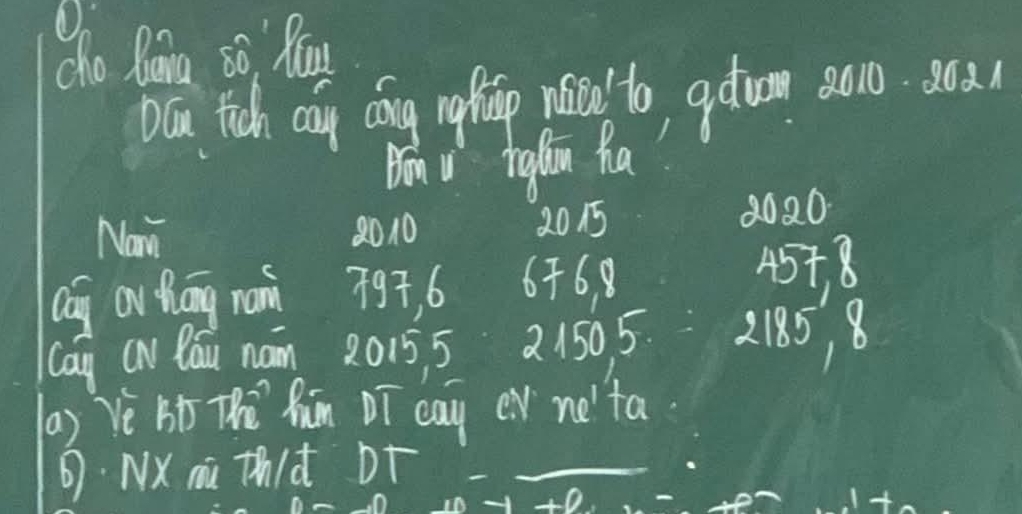 ①.
Cho bảng số liệu
Diện tích cây công nghiệp nước ta, gđoạn 2010 - 2021
Đơn vị nghìn ha
Năm 2010 2015 2020
Cây CN hàng năm 797,6 676,8 457,8
Cây CN lâu năm 2015,5 2150,5 2185,8
a) Vẽ BĐ Thể hiện DT cây CN nc' ta.
b). NX DT